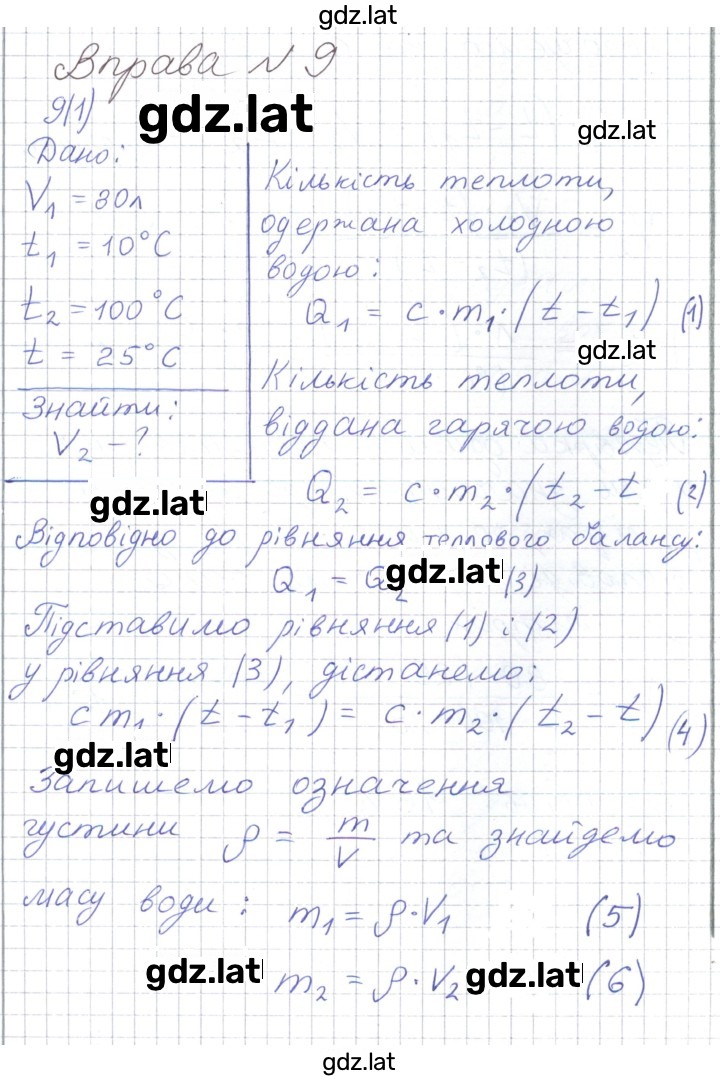 gdz.lat
Вправа №9
9(1)
gdz.lat
gdz.lat
Дано:
V₁ = 30л
t₁ = 10°C
t₂ = 100°C
t = 25°C
Знайти:
V₂ - ?
Кількість теплоти,
одержана холодною
водою:
Q₁ = c·m₁·(t - t₁) (1)
gdz.lat
Кількість теплоти,
віддана гарячою водою:
Q₂ = c·m₂·(t₂ - t (2)
gdz.lat
Відповідно до рівняння теплового балансу:
Q₁ = Q₂ (3)
gdz.lat
Підставимо рівняння (1) і (2)
у рівняння (3), дістанемо:
c m₁·(t - t₁) = c·m₂·(t₂ - t) (4)
gdz.lat
Запишемо означення
густини ρ = m/V та знайдемо
масу води: m₁ = ρ·V₁ (5)
gdz.lat
m₂ = ρ·V₂ (6)
gdz.lat
gdz.lat